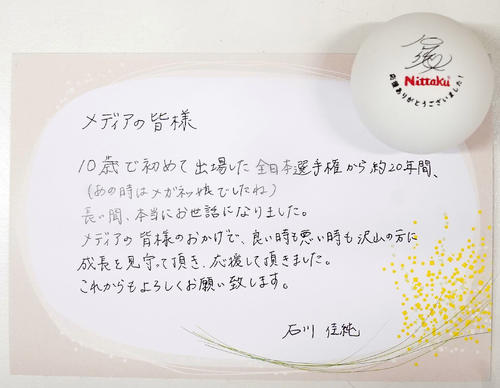 Nittaku
応援ありがとうございました!
メディアの皆様
10歳で初めて出場した全日本選手権から約20年間、
(あの時はメガネッ娘でしたね)
長い間、本当にお世話になりました。
メディアの皆様のおかげで、良い時も悪い時も沢山の方に
成長を見守って頂き、応援して頂きました。
これからもよろしくお願い致します。
石川 佳純